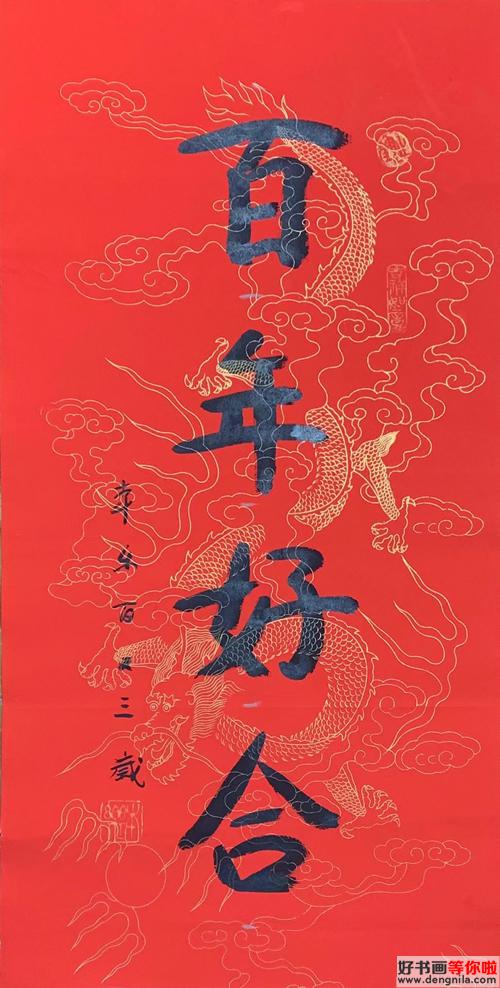 百年好合
百
三歲
好书画等你啦
www.dengnila.com